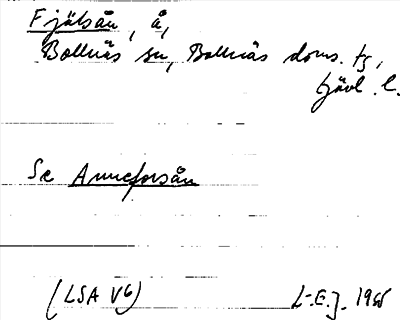 Fjälsån, å,
Bollnäs sn, Bollnäs doms. tg,
Gävl. l.
Se Anneforsån
(LSA V6) L-E.J. 1965